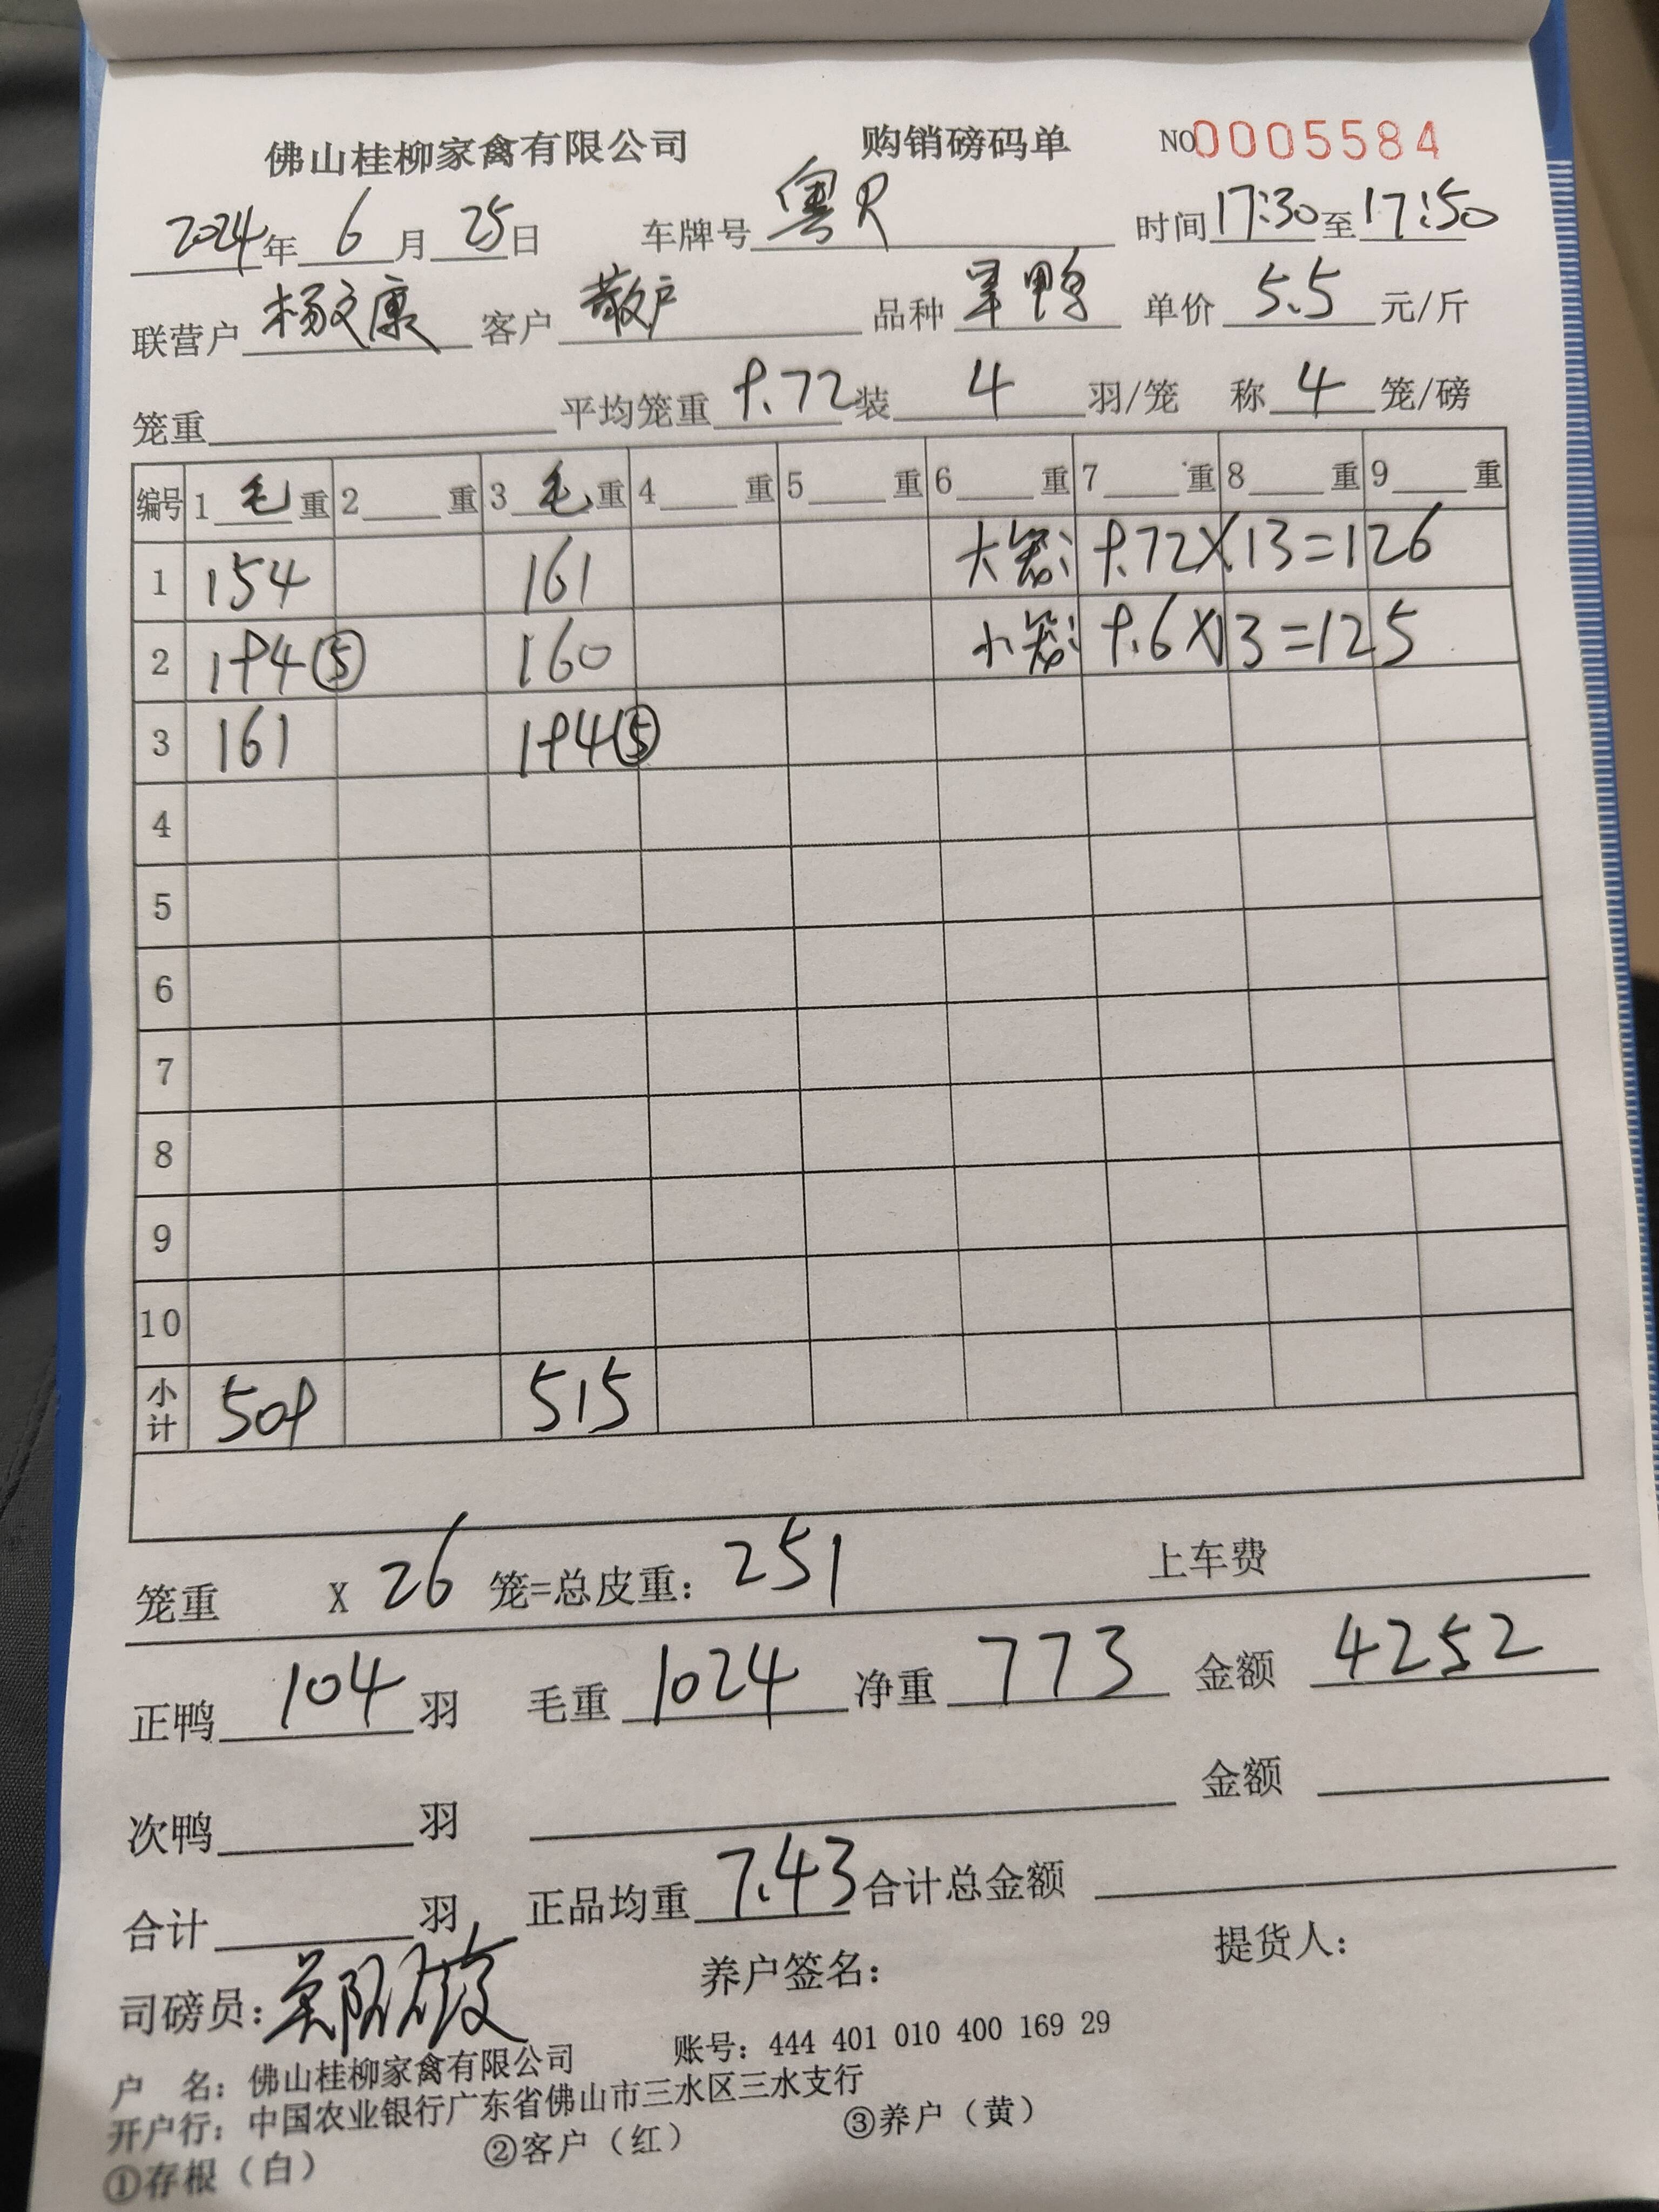 佛山桂柳家禽有限公司 购销磅码单 NO0005584
2024年 6 月 25日 车牌号 粤R 时间17:30至17:50
联营户 杨文康 客户 散户 品种 旱鸭 单价 5.5 元/斤
笼重 平均笼重 9.72 装 4 羽/笼 称 4 笼/磅
编号 1 毛 重 2 重 3 毛 重 4 重 5 重 6 重 7 重 8 重 9 重
1 154 161 大笼: 9.72X13=126
2 194⑤ 160 小笼: 9.6X13=125
3 161 194⑤
4
5
6
7
8
9
10
小计 509 515
笼重 X 26 笼=总皮重: 251 上车费
正鸭 104 羽 毛重 1024 净重 773 金额 4252
次鸭 羽 金额
合计 羽 正品均重 7.43 合计总金额
司磅员: 养户签名: 提货人:
户 名: 佛山桂柳家禽有限公司 账号: 444 401 010 400 169 29
开户行: 中国农业银行广东省佛山市三水区三水支行
①存根（白） ②客户（红） ③养户（黄）